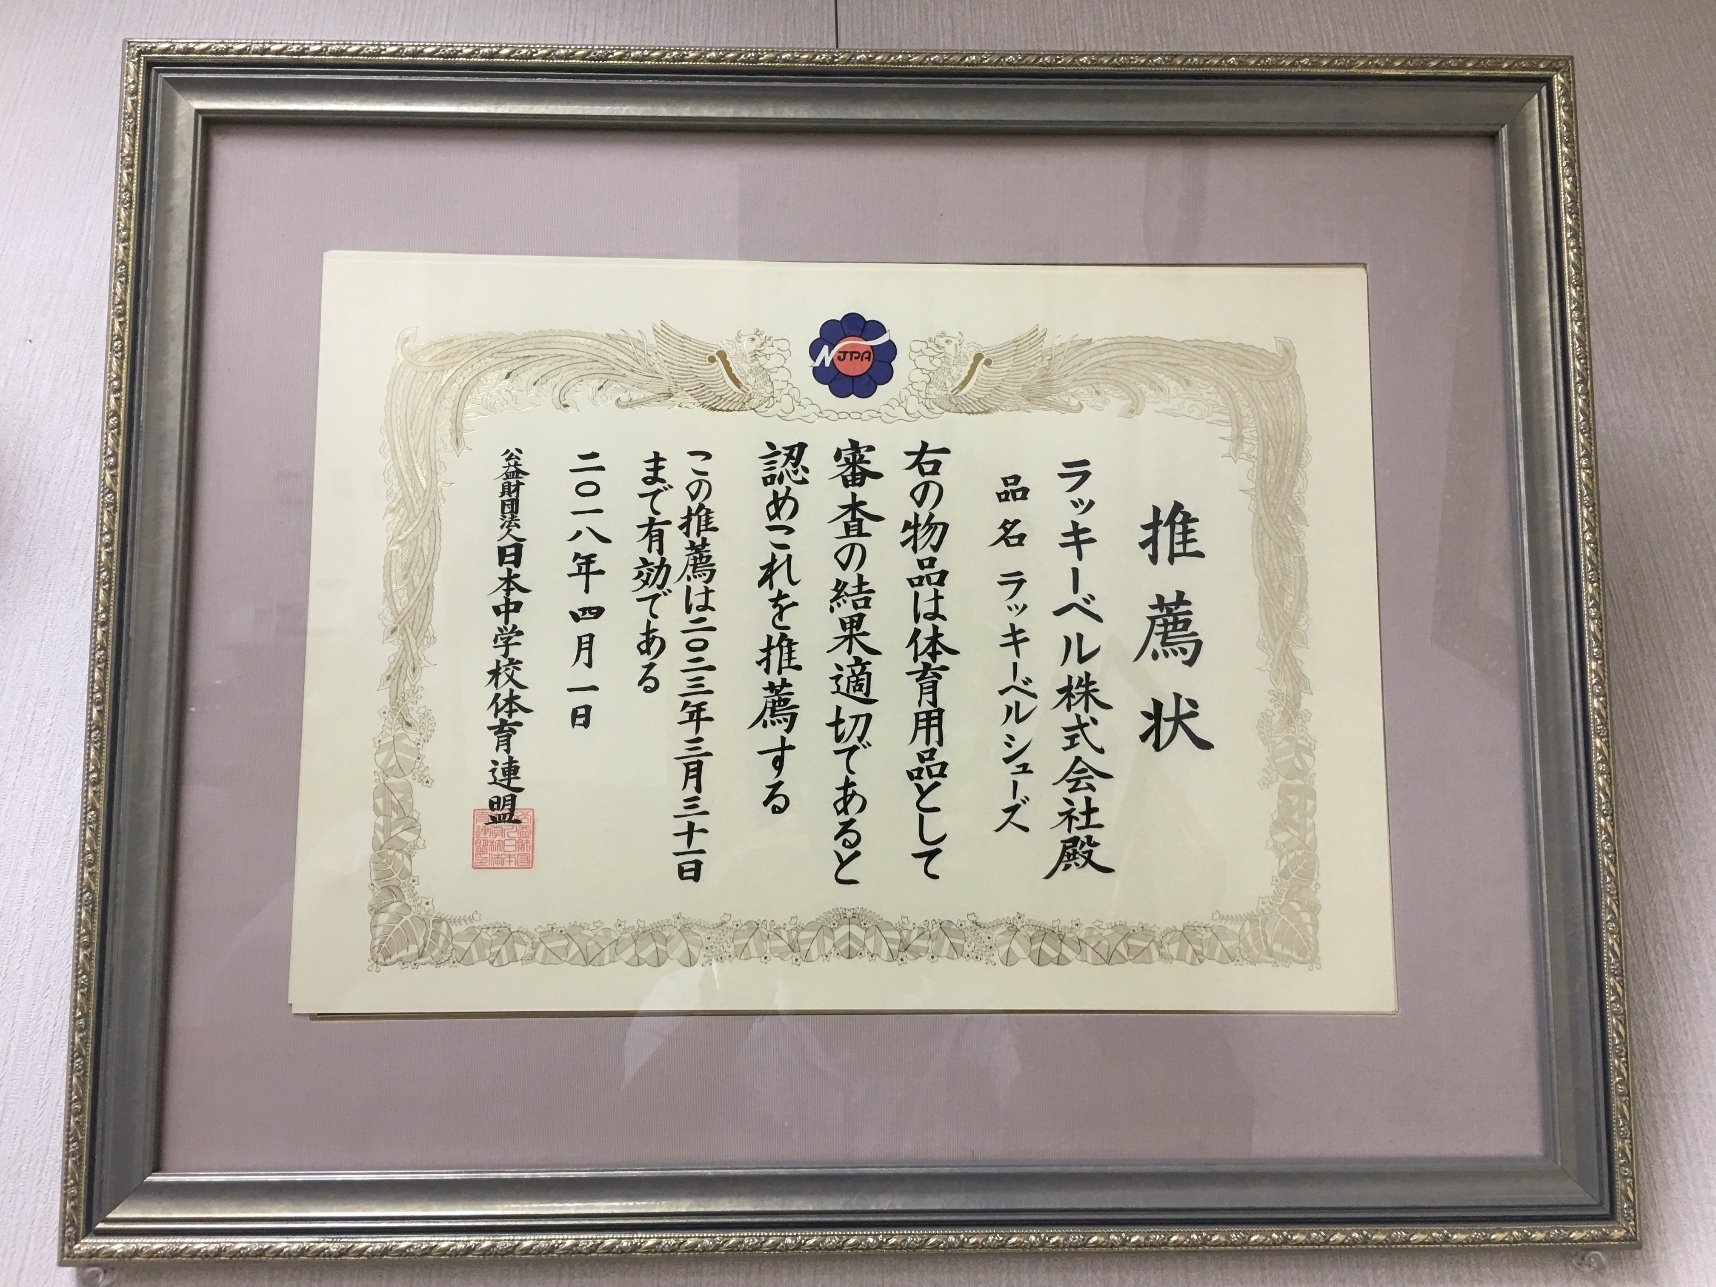 NJPA
推薦状
ラッキーベル株式会社殿
品名 ラッキーベルシューズ
右の物品は体育用品として
審査の結果適切であると
認めこれを推薦する
この推薦は二〇二三年三月三十一日
まで有効である
二〇一八年四月一日
公益財団法人日本中学校体育連盟